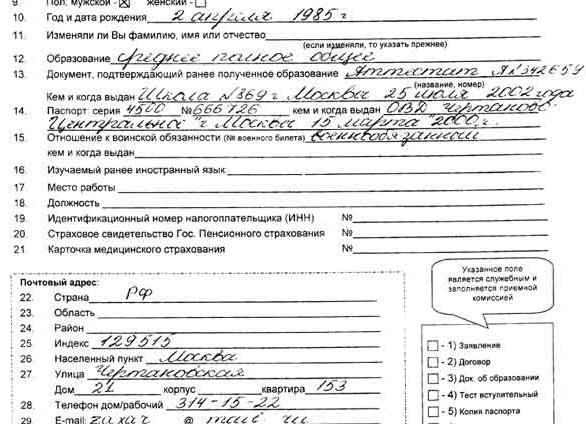 9. Пол: мужской - ☒ женский - ☐
10. Год и дата рождения 2 апреля 1985 г.
11. Изменяли ли Вы фамилию, имя или отчество
(если изменяли, то указать прежнее)
12. Образование среднее полное общее
13. Документ, подтверждающий ранее полученное образование Аттестат А №342659
(название, номер)
Кем и когда выдан Школа №369 г Москвы 25 июля 2002 года
14. Паспорт: серия 4500 №666726 кем и когда выдан ОВД "Чертаново
Центральное" г Москвы 15 марта 2000 г.
15. Отношение к воинской обязанности (№ военного билета) военнообязанный
кем и когда выдан
16. Изучаемый ранее иностранный язык
17. Место работы
18. Должность
19. Идентификационный номер налогоплательщика (ИНН) №
20. Страховое свидетельство Гос. Пенсионного страхования №
21. Карточка медицинского страхования №
Почтовый адрес:
22. Страна РФ
23. Область
24. Район
25. Индекс 129515
26. Населенный пункт Москва
27. Улица Чертановская
Дом 21 корпус квартира 153
28. Телефон дом/рабочий 314-15-22
29. E-mail: zaxar @ mail. ru
Указанное поле
является служебным и
заполняется приемной
комиссией
☐ - 1) Заявление
☐ - 2) Договор
☐ - 3) Док. об образовании
☐ - 4) Тест вступительный
☐ - 5) Копия паспорта